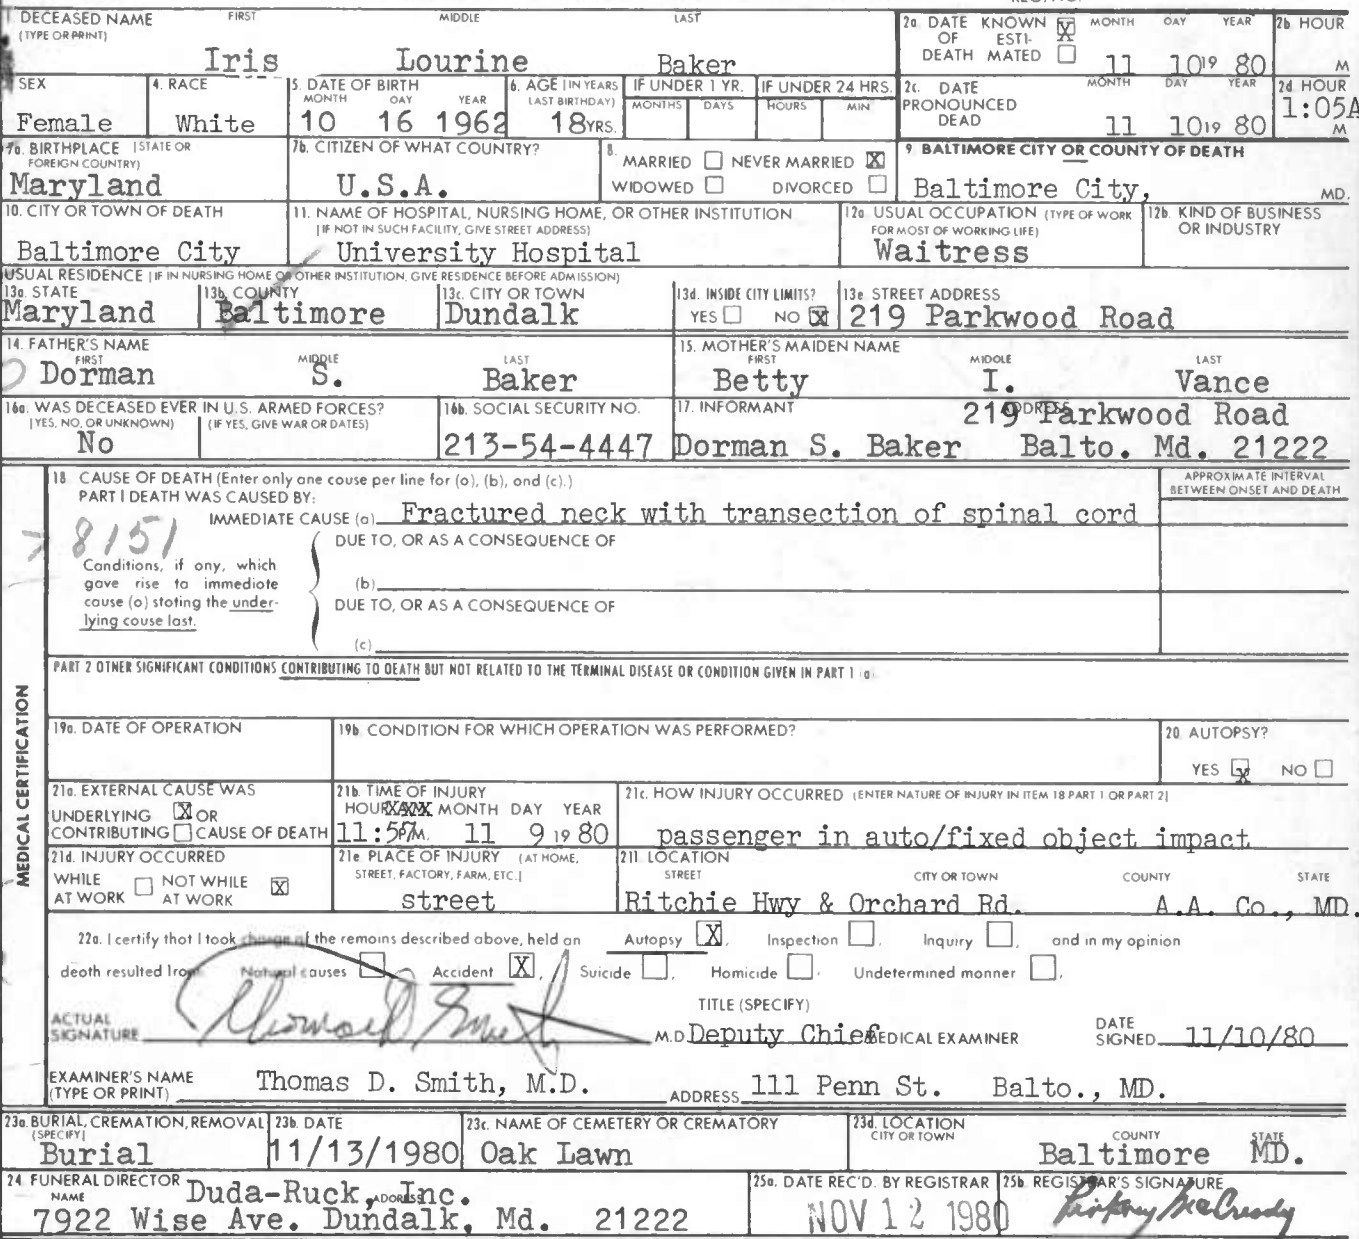 1 DECEASED NAME FIRST MIDDLE LAST
(TYPE OR PRINT)
Iris Lourine Baker
2a. DATE KNOWN X MONTH DAY YEAR
OF ESTI-
DEATH MATED
11 10 19 80
2b. HOUR
M
SEX
Female
4. RACE
White
5. DATE OF BIRTH
MONTH DAY YEAR
10 16 1962
6. AGE (IN YEARS
LAST BIRTHDAY)
18 YRS.
IF UNDER 1 YR.
MONTHS DAYS
IF UNDER 24 HRS.
HOURS MIN
2c. DATE MONTH DAY YEAR
PRONOUNCED
DEAD
11 10 19 80
2d. HOUR
1:05A
M
7a. BIRTHPLACE (STATE OR
FOREIGN COUNTRY)
Maryland
7b. CITIZEN OF WHAT COUNTRY?
U.S.A.
8.
MARRIED NEVER MARRIED X
WIDOWED DIVORCED
9. BALTIMORE CITY OR COUNTY OF DEATH
Baltimore City, MD.
10. CITY OR TOWN OF DEATH
Baltimore City
11. NAME OF HOSPITAL, NURSING HOME, OR OTHER INSTITUTION
(IF NOT IN SUCH FACILITY, GIVE STREET ADDRESS)
University Hospital
12a. USUAL OCCUPATION (TYPE OF WORK
FOR MOST OF WORKING LIFE)
Waitress
12b. KIND OF BUSINESS
OR INDUSTRY
USUAL RESIDENCE (IF IN NURSING HOME OR OTHER INSTITUTION, GIVE RESIDENCE BEFORE ADMISSION)
13a. STATE
Maryland
13b. COUNTY
Baltimore
13c. CITY OR TOWN
Dundalk
13d. INSIDE CITY LIMITS?
YES NO X
13e. STREET ADDRESS
219 Parkwood Road
14. FATHER'S NAME
FIRST MIDDLE LAST
Dorman S. Baker
15. MOTHER'S MAIDEN NAME
FIRST MIDDLE LAST
Betty I. Vance
16a. WAS DECEASED EVER IN U.S. ARMED FORCES?
(YES, NO, OR UNKNOWN) (IF YES, GIVE WAR OR DATES)
No
16b. SOCIAL SECURITY NO.
213-54-4447
17. INFORMANT ADDRESS
219 Parkwood Road
Dorman S. Baker Balto. Md. 21222
MEDICAL CERTIFICATION
18. CAUSE OF DEATH (Enter only one cause per line for (a), (b), and (c).)
PART I DEATH WAS CAUSED BY:
APPROXIMATE INTERVAL
BETWEEN ONSET AND DEATH
IMMEDIATE CAUSE (a) Fractured neck with transection of spinal cord
8151
DUE TO, OR AS A CONSEQUENCE OF
Conditions, if any, which
gave rise to immediate
cause (a) stating the under-
lying cause last.
(b)
DUE TO, OR AS A CONSEQUENCE OF
(c)
PART 2 OTHER SIGNIFICANT CONDITIONS CONTRIBUTING TO DEATH BUT NOT RELATED TO THE TERMINAL DISEASE OR CONDITION GIVEN IN PART 1 (a)
19a. DATE OF OPERATION
19b. CONDITION FOR WHICH OPERATION WAS PERFORMED?
20. AUTOPSY?
YES X NO
21a. EXTERNAL CAUSE WAS
UNDERLYING X OR
CONTRIBUTING CAUSE OF DEATH
21b. TIME OF INJURY
HOUR MONTH DAY YEAR
11:57 P.M. 11 9 19 80
21c. HOW INJURY OCCURRED (ENTER NATURE OF INJURY IN ITEM 18 PART 1 OR PART 2)
passenger in auto/fixed object impact
21d. INJURY OCCURRED
WHILE NOT WHILE
AT WORK AT WORK X
21e. PLACE OF INJURY (AT HOME,
STREET, FACTORY, FARM, ETC.)
street
21f. LOCATION
STREET CITY OR TOWN COUNTY STATE
Ritchie Hwy & Orchard Rd. A.A. Co., MD.
22a. I certify that I took charge of the remains described above, held an Autopsy X, Inspection , Inquiry , and in my opinion
death resulted from Natural causes Accident X, Suicide , Homicide , Undetermined manner .
TITLE (SPECIFY)
ACTUAL
SIGNATURE Thomas D Smith M.D. Deputy Chief MEDICAL EXAMINER
DATE
SIGNED 11/10/80
EXAMINER'S NAME
(TYPE OR PRINT) Thomas D. Smith, M.D. ADDRESS 111 Penn St. Balto., MD.
23a. BURIAL, CREMATION, REMOVAL
(SPECIFY)
Burial
23b. DATE
11/13/1980
23c. NAME OF CEMETERY OR CREMATORY
Oak Lawn
23d. LOCATION
CITY OR TOWN COUNTY STATE
Baltimore MD.
24. FUNERAL DIRECTOR
NAME ADDRESS
Duda-Ruck, Inc.
7922 Wise Ave. Dundalk, Md. 21222
25a. DATE REC'D. BY REGISTRAR
NOV 12 1980
25b. REGISTRAR'S SIGNATURE